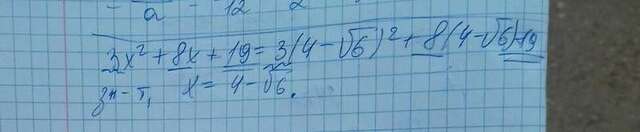 a 12 2
3x² + 8x + 19 = 3(4 - √6)² + 8(4 - √6) + 19
зн-т, x = 4 - √6.